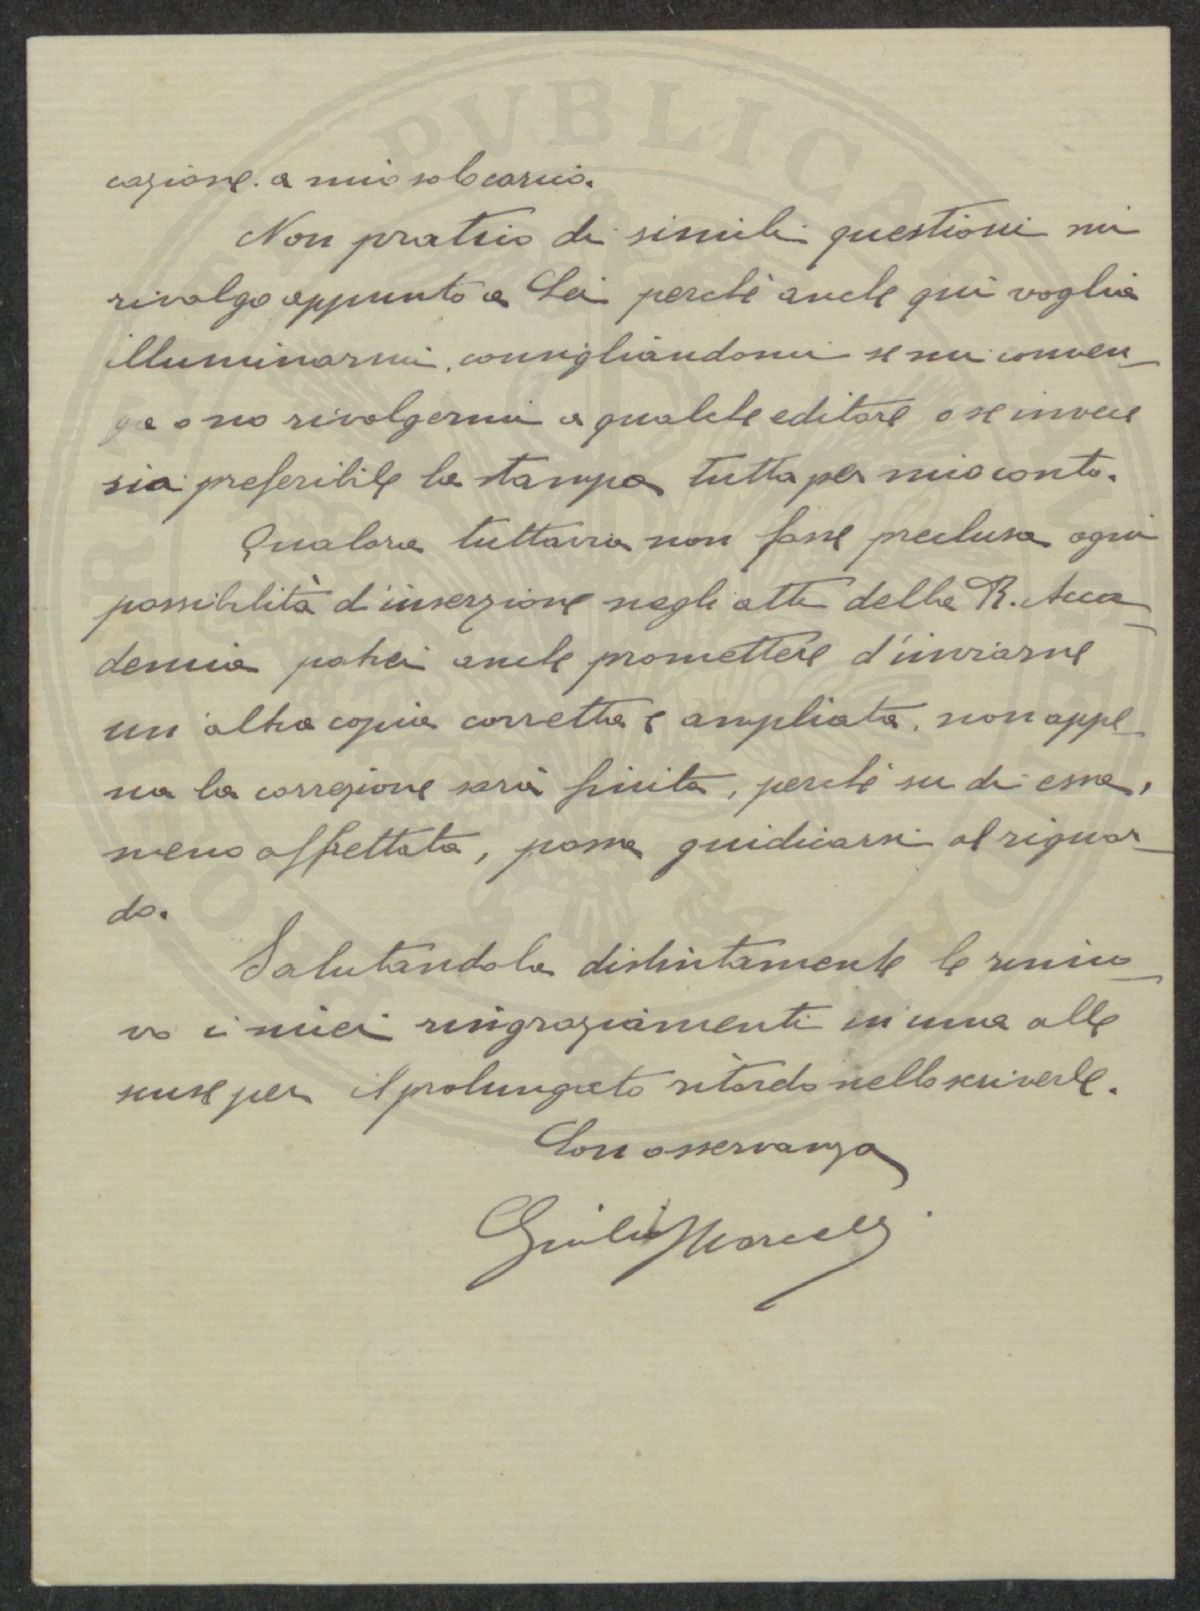 cazione a mio solo carico.
Non pratico di simili questioni mi
rivolgo appunto a Lei perchè anche qui voglia
illuminarmi, consigliandomi se mi conven-
ga o no rivolgermi a qualche editore o se invece
sia preferibile la stampa tutta per mio conto.
Qualora tuttavia non fosse preclusa ogni
possibilità d'inserzione negli atti della R. Acca-
demia potrei anche promettere d'inviarne
un'altra copia corretta e ampliata, non appe-
na la correzione sarà finita, perchè su di essa,
meno affrettata, possa giudicarsi al riguar-
do.
Salutandola distintamente le rinno-
vo i miei ringraziamenti in una alle
scuse per il prolungato ritardo nello scriverle.
Con osservanza
Giulio